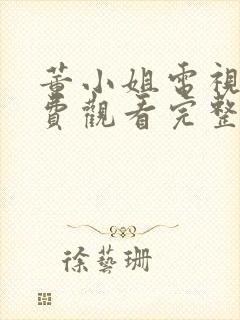 蔷小姐電視
費觀看完整
徐藝珊